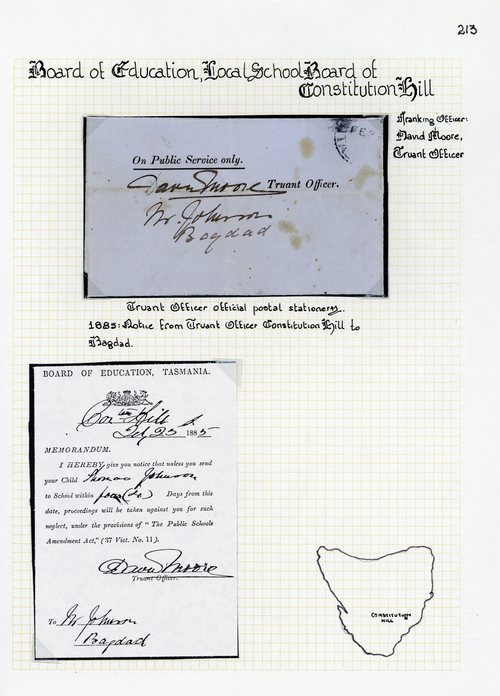 213
Board of Education, Local School Board of
Constitution Hill
Franking Officer:
David Moore,
Truant Officer
On Public Service only.
David Moore Truant Officer.
Mr. Johnson
Bagdad
Truant Officer official postal stationery.
1885: Notice from Truant Officer Constitution Hill to
Bagdad.
BOARD OF EDUCATION, TASMANIA.
Hill
23 1885
MEMORANDUM.
I HEREBY give you notice that unless you send
your Child Thomas Johnson
to School within four Days from this
date, proceedings will be taken against you for such
neglect, under the provisions of "The Public Schools
Amendment Act," (37 Vict. No. 11).
David Moore
Truant Officer.
To Mr Johnson
Bagdad
CONSTITUTION
HILL